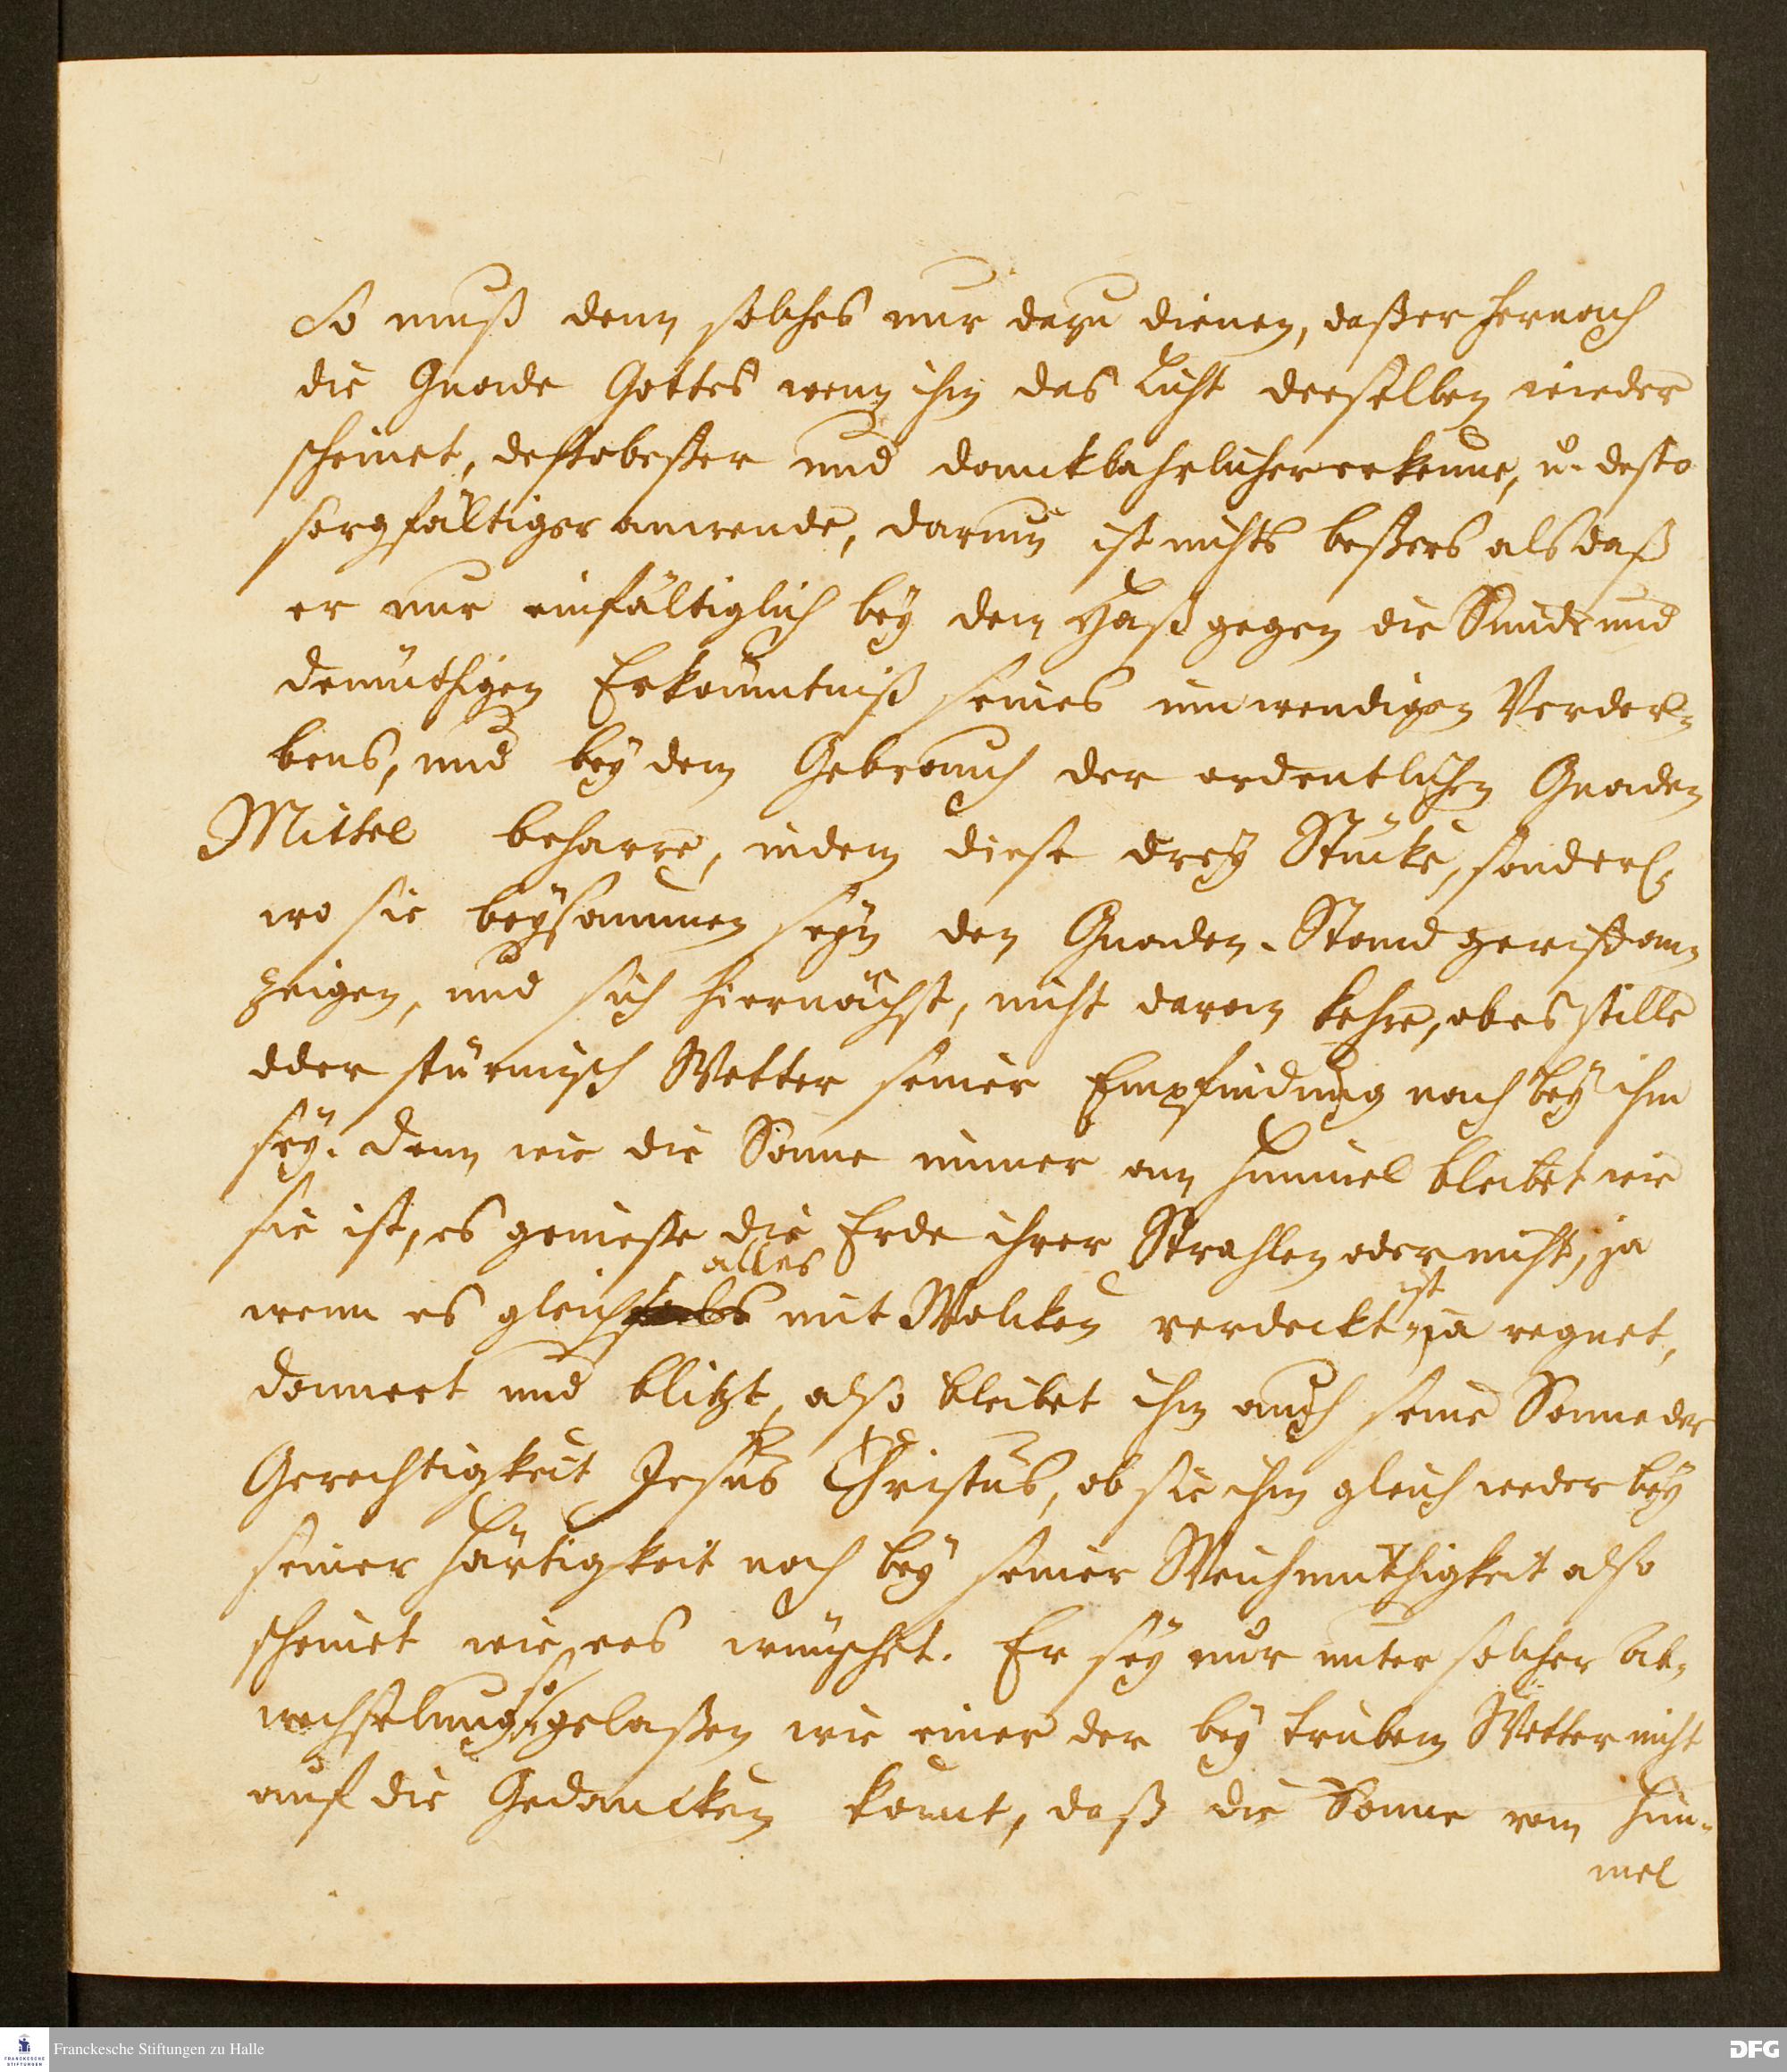 So muß denn solches nur dazu dienen, daß er hernach
die Gnade Gottes wenn ihm das Licht derselben wieder
scheinet, desto beßer und danckbahrlicher erkenne, u. desto
sorgfältiger anwende, darum ist nichts beßers als daß
er nur einfältiglich bey dem Haß gegen die Sünde und
demüthigen Erkäntniß seines inwendigen Verder-
bens, und bey dem Gebrauch der ordentlichen Gnaden
Mittel beharre, indem diese drey Stücke, sonderl.
wo sie beysammen seyn den Gnaden-Stand gewiß an-
zeigen, und sich hiernächst, nicht daran kehre, ob es stille
oder stürmisch Wetter seiner Empfindung nach bey ihm
sey. Denn wie die Sonne immer am Himmel bleibet wie
sie ist, es genieße die Erde ihrer Strahlen oder nicht, ja
alles
ist
wenn es gleich mit Wolcken verdeckt ja regnet,
donnert und blitzt, also bleibet ihm auch seine Sonne der
Gerechtigkeit Jesus Christus, ob sie ihm gleich weder bey
seiner Härtigkeit noch bey seiner Weichmüthigkeit also
scheinet wie ers wünschet. Er sey nur unter solcher Ab-
so
wechselung gelaßen wie einer der bey trüben Wetter nicht
auf die Gedancken komt, daß die Sonne vom Him-
mel
Franckesche Stiftungen zu Halle
DFG